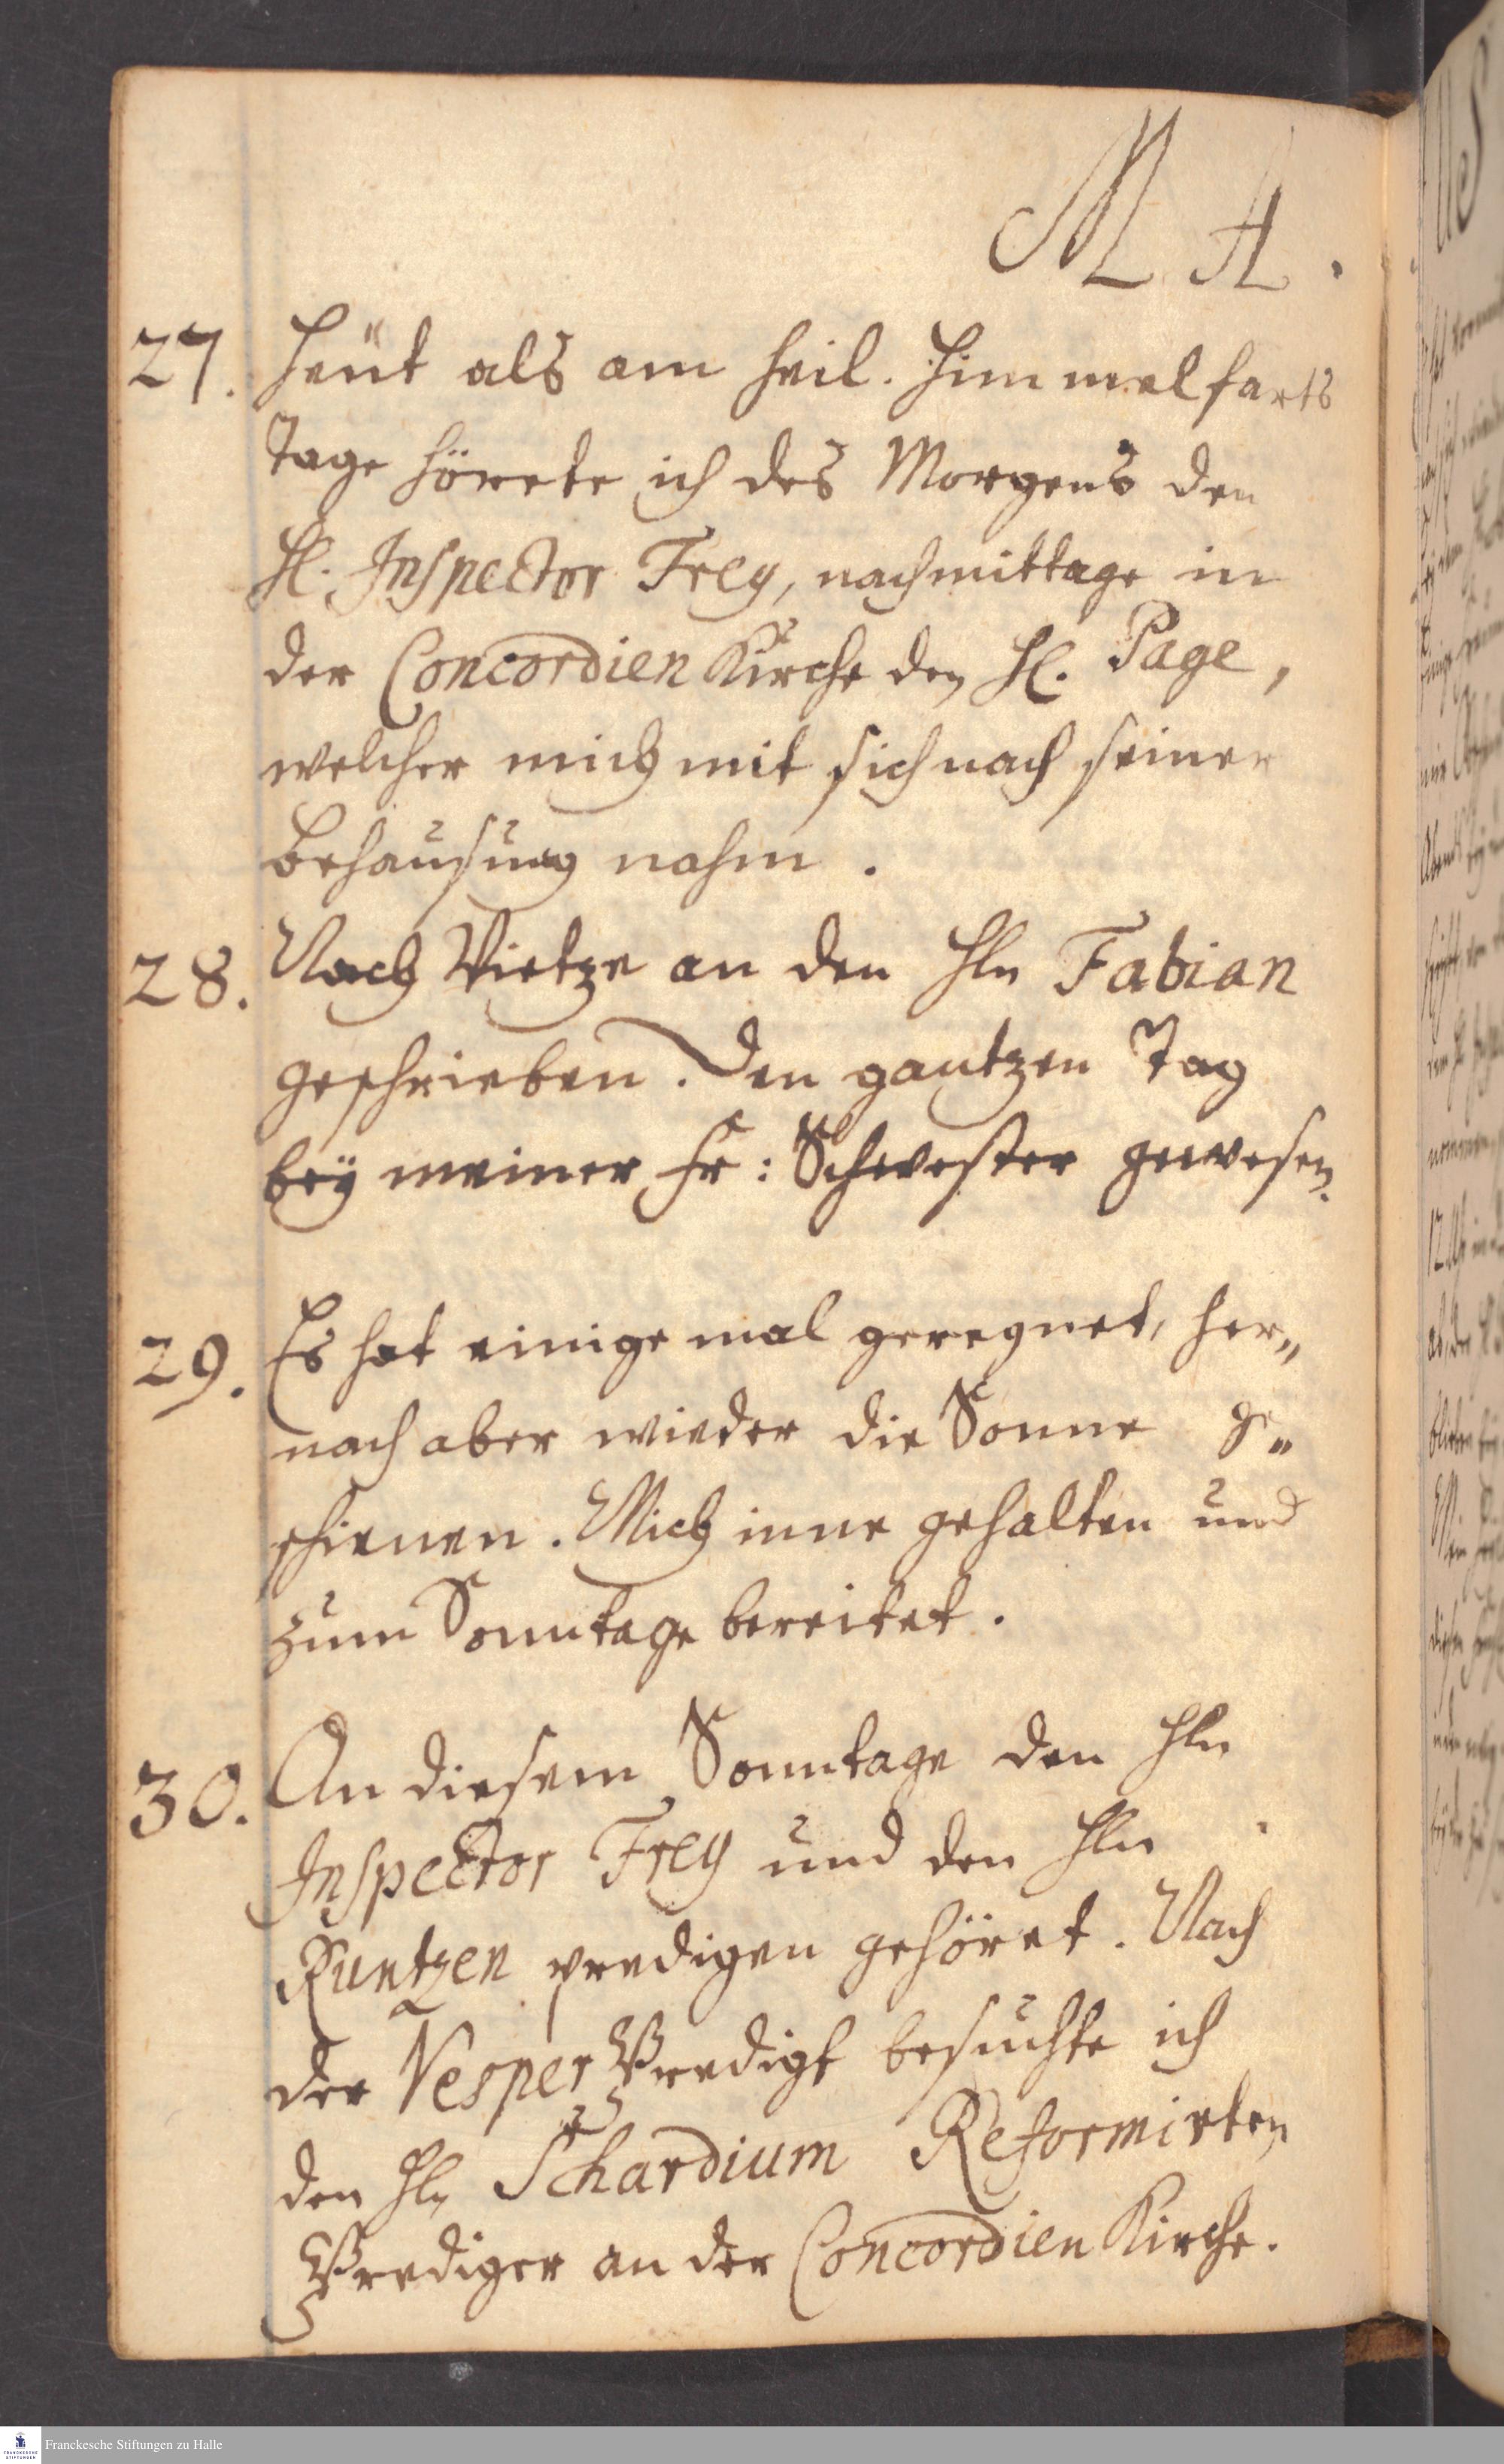 MA.
27. Heüt als am heil. Himmelfarts
Tage hörete ich des Morgens den
H. Inspector Frey, nachmittage in
der Concordien Kirche den H. Page,
welcher mich mit sich nach seiner
Behausung nahm.
28. Nach Vietze an den Hln Fabian
geschrieben. Den gantzen Tag
bey meiner Fr: Schwester gewesen.
29. Es hat einige mal geregnet, her„
nach aber wieder die Sonne ge„
schienen. Mich inne gehalten und
zum Sonntage bereitet.
30. An diesem Sonntage den Hln
Inspector Frey und den Hln
Kuntzen predigen gehöret. Nach
der Vesper Predigt besuchte ich
den Hln Schardium Reformirten
Prediger an der Concordien Kirche.
Franckesche Stiftungen zu Halle